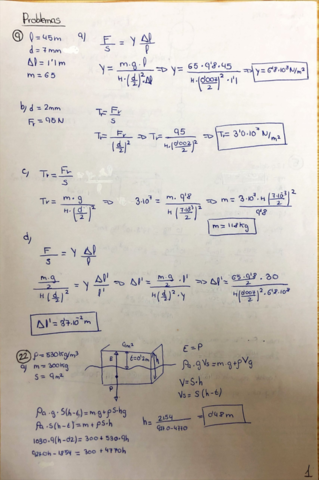 Problemas
9) l = 45m
d = 7mm
Δl = 1'1m
m = 65
a) F/S = Y Δl/l
Y = m·g·l / π·(d/2)²·Δl ⇒ Y = 65·9'8·45 / π·(0'007/2)²·1'1 ⇒ Y = 6'8·10⁸ N/m²
b) d = 2mm
Fr = 95N
Tr = Fr/S
Tr = Fr/(d/2)² ⇒ Tr = 95/π·(0'002/2)² ⇒ Tr = 3'0·10⁷ N/m²
c) Tr = Fr/S
Tr = m·g/π·(d/2)² ⇒ 3·10⁷ = m·9'8/π(7·10⁻³/2)² ⇒ m = 3·10⁷·π(7·10⁻³/2)²/9'8
m = 118kg
d)
F/S = Y Δl/l
m·g/2 / π(d/2)² = Y Δl'/l' ⇒ Δl' = m·g/2·l' / π(d/2)²·Y ⇒ Δl' = 65·9'8/2·30 / π(0'007/2)²·6'8·10⁸
Δl' = 3'7·10⁻² m
22) ρ = 530kg/m³
a) m = 300kg
S = 9m²
9m²
E
t=0'2m
h
P
E = P
ρa·g Vs = m g + ρVg
V = S·h
Vs = S(h-t)
ρa·g·S(h-t) = mg + ρS·hg
ρa·S(h-t) = m + ρS·h
1030·9(h-0'2) = 300 + 530·9h
9270h - 1854 = 300 + 4770h
h = 2154/9270-4770 = 0'48m
1